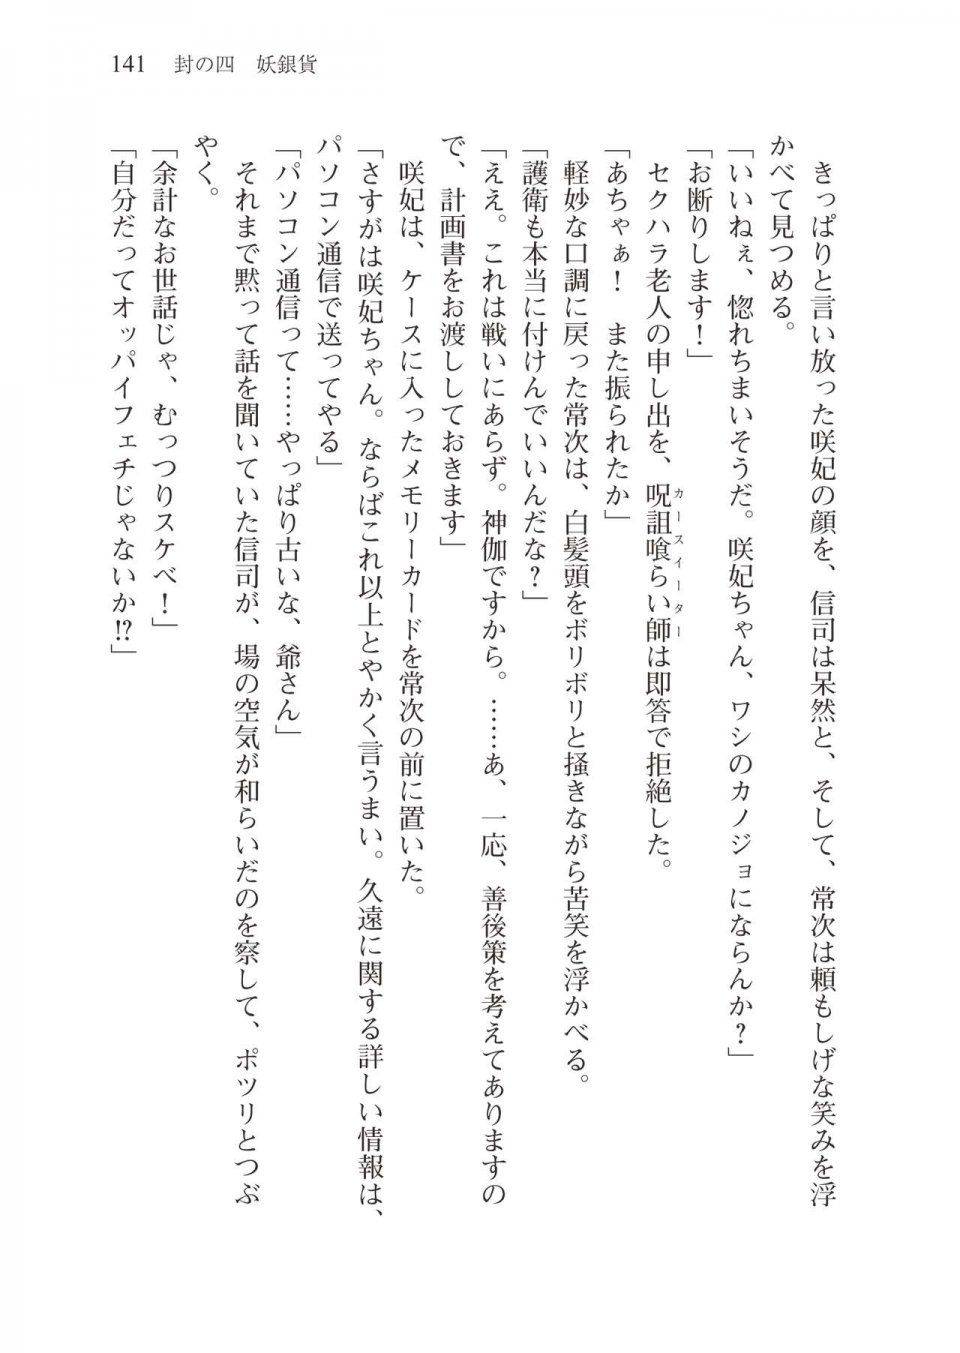 141　封の四　妖銀貨
　きっぱりと言い放った咲妃の顔を、信司は呆然と、そして、常次は頼もしげな笑みを浮
かべて見つめる。
「いいねぇ、惚れちまいそうだ。咲妃ちゃん、ワシのカノジョにならんか？」
「お断りします！」
　セクハラ老人の申し出を、呪詛喰らい師は即答で拒絶した。
カースイーター
「あちゃぁ！　また振られたか」
　軽妙な口調に戻った常次は、白髪頭をボリボリと掻きながら苦笑を浮かべる。
「護衛も本当に付けんでいいんだな？」
「ええ。これは戦いにあらず。神伽ですから。……あ、一応、善後策を考えてありますの
で、計画書をお渡ししておきます」
　咲妃は、ケースに入ったメモリーカードを常次の前に置いた。
「さすがは咲妃ちゃん。ならばこれ以上とやかく言うまい。久遠に関する詳しい情報は、
パソコン通信で送ってやる」
「パソコン通信って……やっぱり古いな、爺さん」
　それまで黙って話を聞いていた信司が、場の空気が和らいだのを察して、ポツリとつぶ
やく。
「余計なお世話じゃ、むっつりスケベ！」
「自分だってオッパイフェチじゃないか!?」